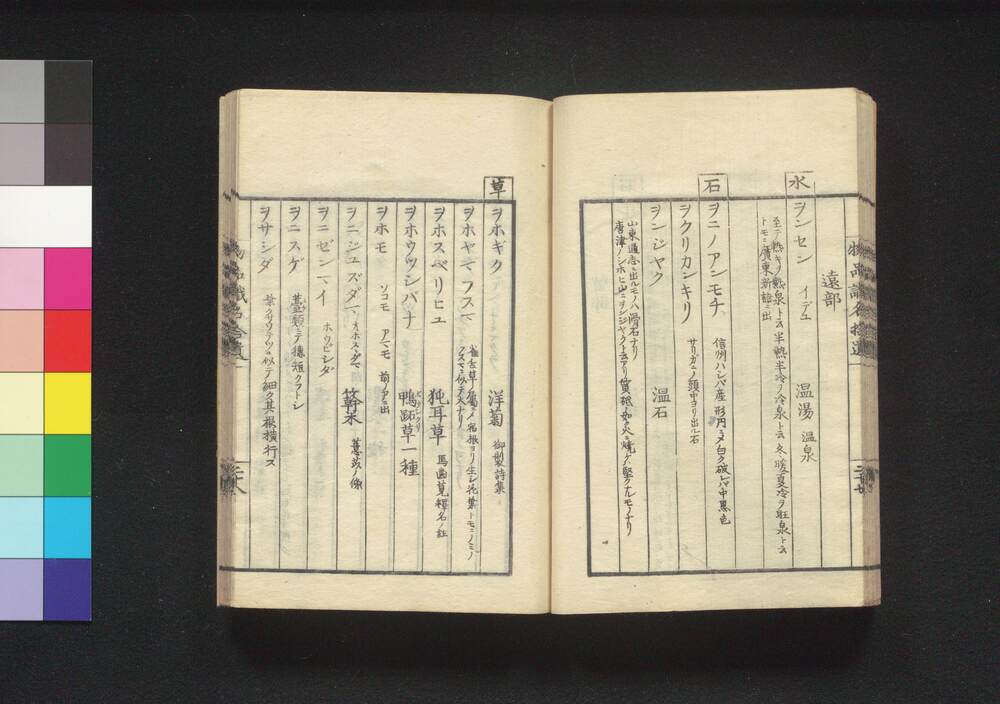 遠部
水
ヲンセン イデユ 温湯 温泉
至テ熱キヲ熱泉ト云半熱半冷ヲ冷泉ト云冬暖夏冷ヲ旺泉ト云
トモニ廣東新語ニ出
石
ヲニノアシモチ 信州ハシバ産形円ヲメ白ク破レバ中黒色
ヲクリカンキリ サリガニノ頭中ヨリ出ル石
ヲンジヤク 温石
山東通志ニ出ルモノハ滑石ナリ
唐津ノシホヒ山ニヲンジヤクト云アリ質砥ノ如火ニ焼ケバ堅クナルモノナリ
物品識名拾遺
草
ヲホギク 洋菊 御製詩集
ヲホヤマフスマ
ヲホスベリヒユ 㹠耳草 馬歯莧釋名ノ註
ヲホウツシバナ 鴨跖草一種
ヲホモ ソコモ アマモ 前ノアニ出
ヲニジユズダマ オホスダマ 簳米 薏苡ノ條
ヲニゼンマイ ホウビシダ
ヲニスゲ 薹類ニテ穗短クフトシ
ヲサシダ 葉クサソテツニ似テ細ク其根横行ス
物品識名拾遺
二十八